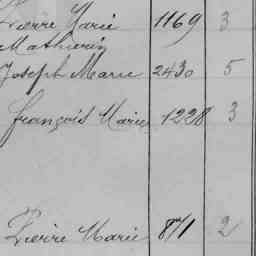 Pierre Marie 1169 3
Mathurin
Joseph Marie 2430 5
françois Marie 1228 3
Pierre Marie 871 2